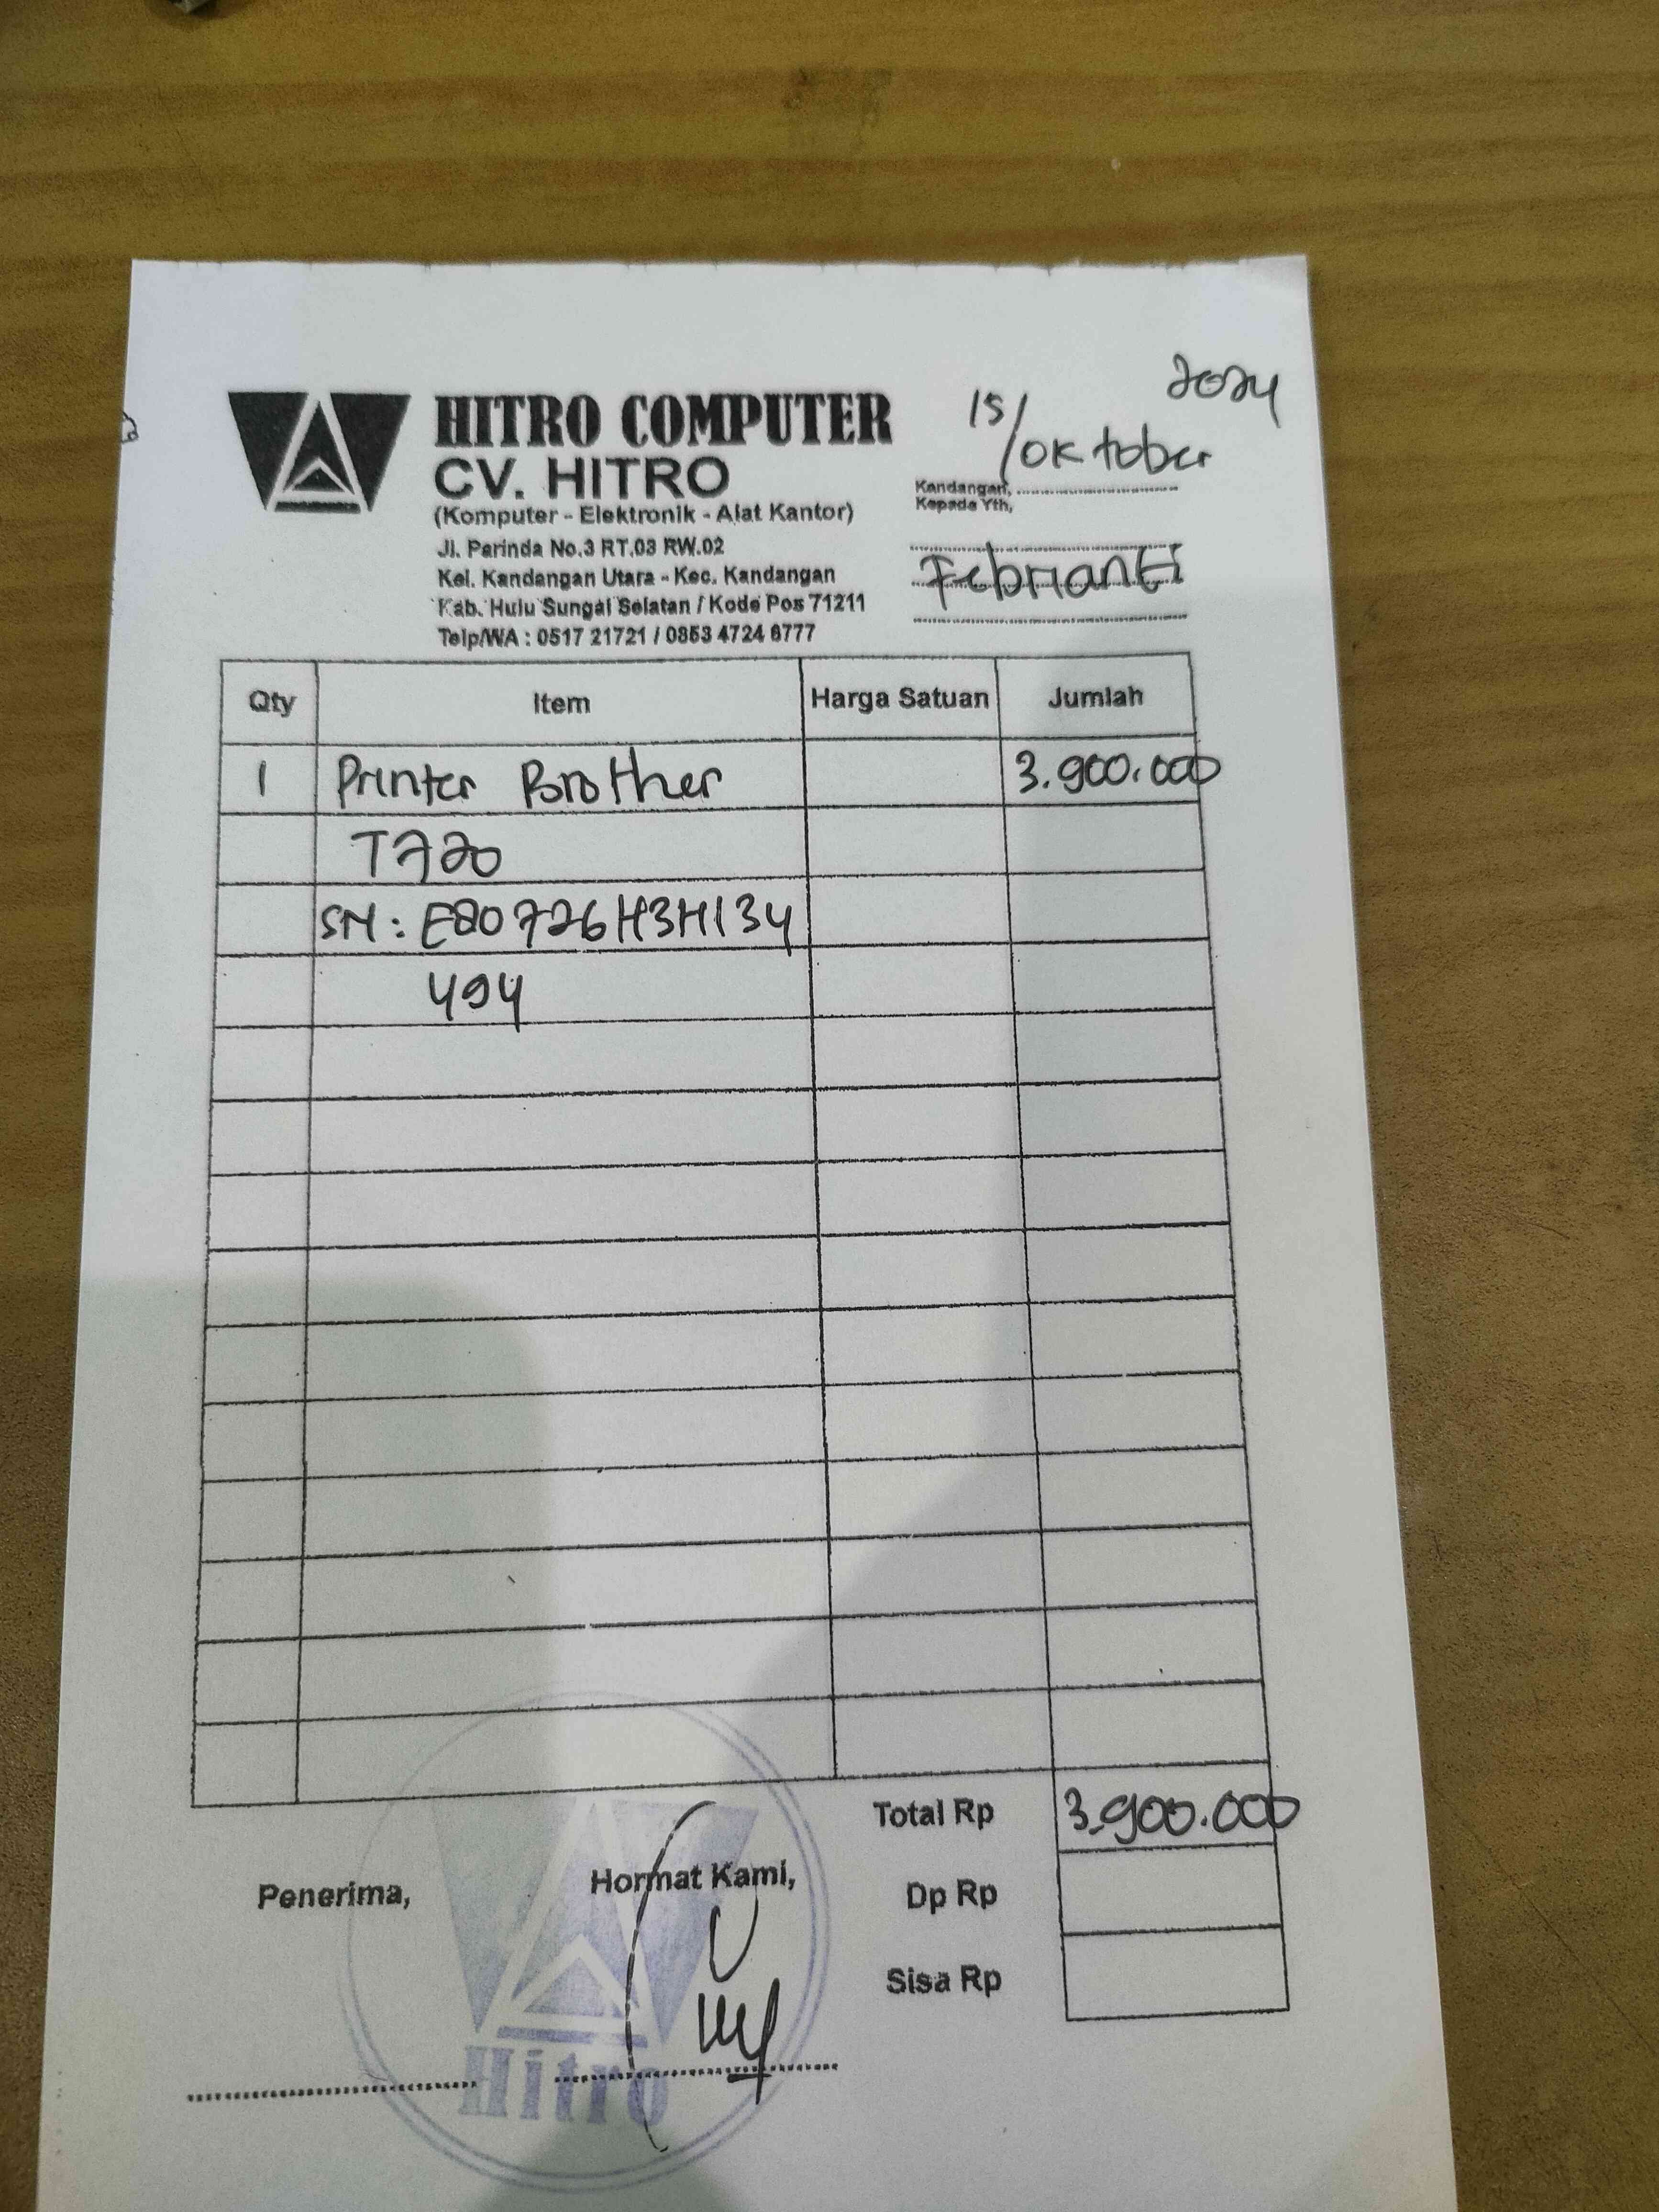 HITRO COMPUTER
CV. HITRO
(Komputer - Elektronik - Alat Kantor)
Jl. Parinda No.3 RT.03 RW.02
Kel. Kandangan Utara - Kec. Kandangan
Kab. Hulu Sungai Selatan / Kode Pos 71211
Telp/WA : 0517 21721 / 0853 4724 6777
2024
15/oktober
Kandangan,
Kepada Yth,
Febrianti
Qty Item Harga Satuan Jumlah
1 Printer Brother 3.900.000
T720
SN : E80726H3H134
494
Total Rp 3.900.000
Penerima, Hormat Kami, Dp Rp
Sisa Rp
Hitro